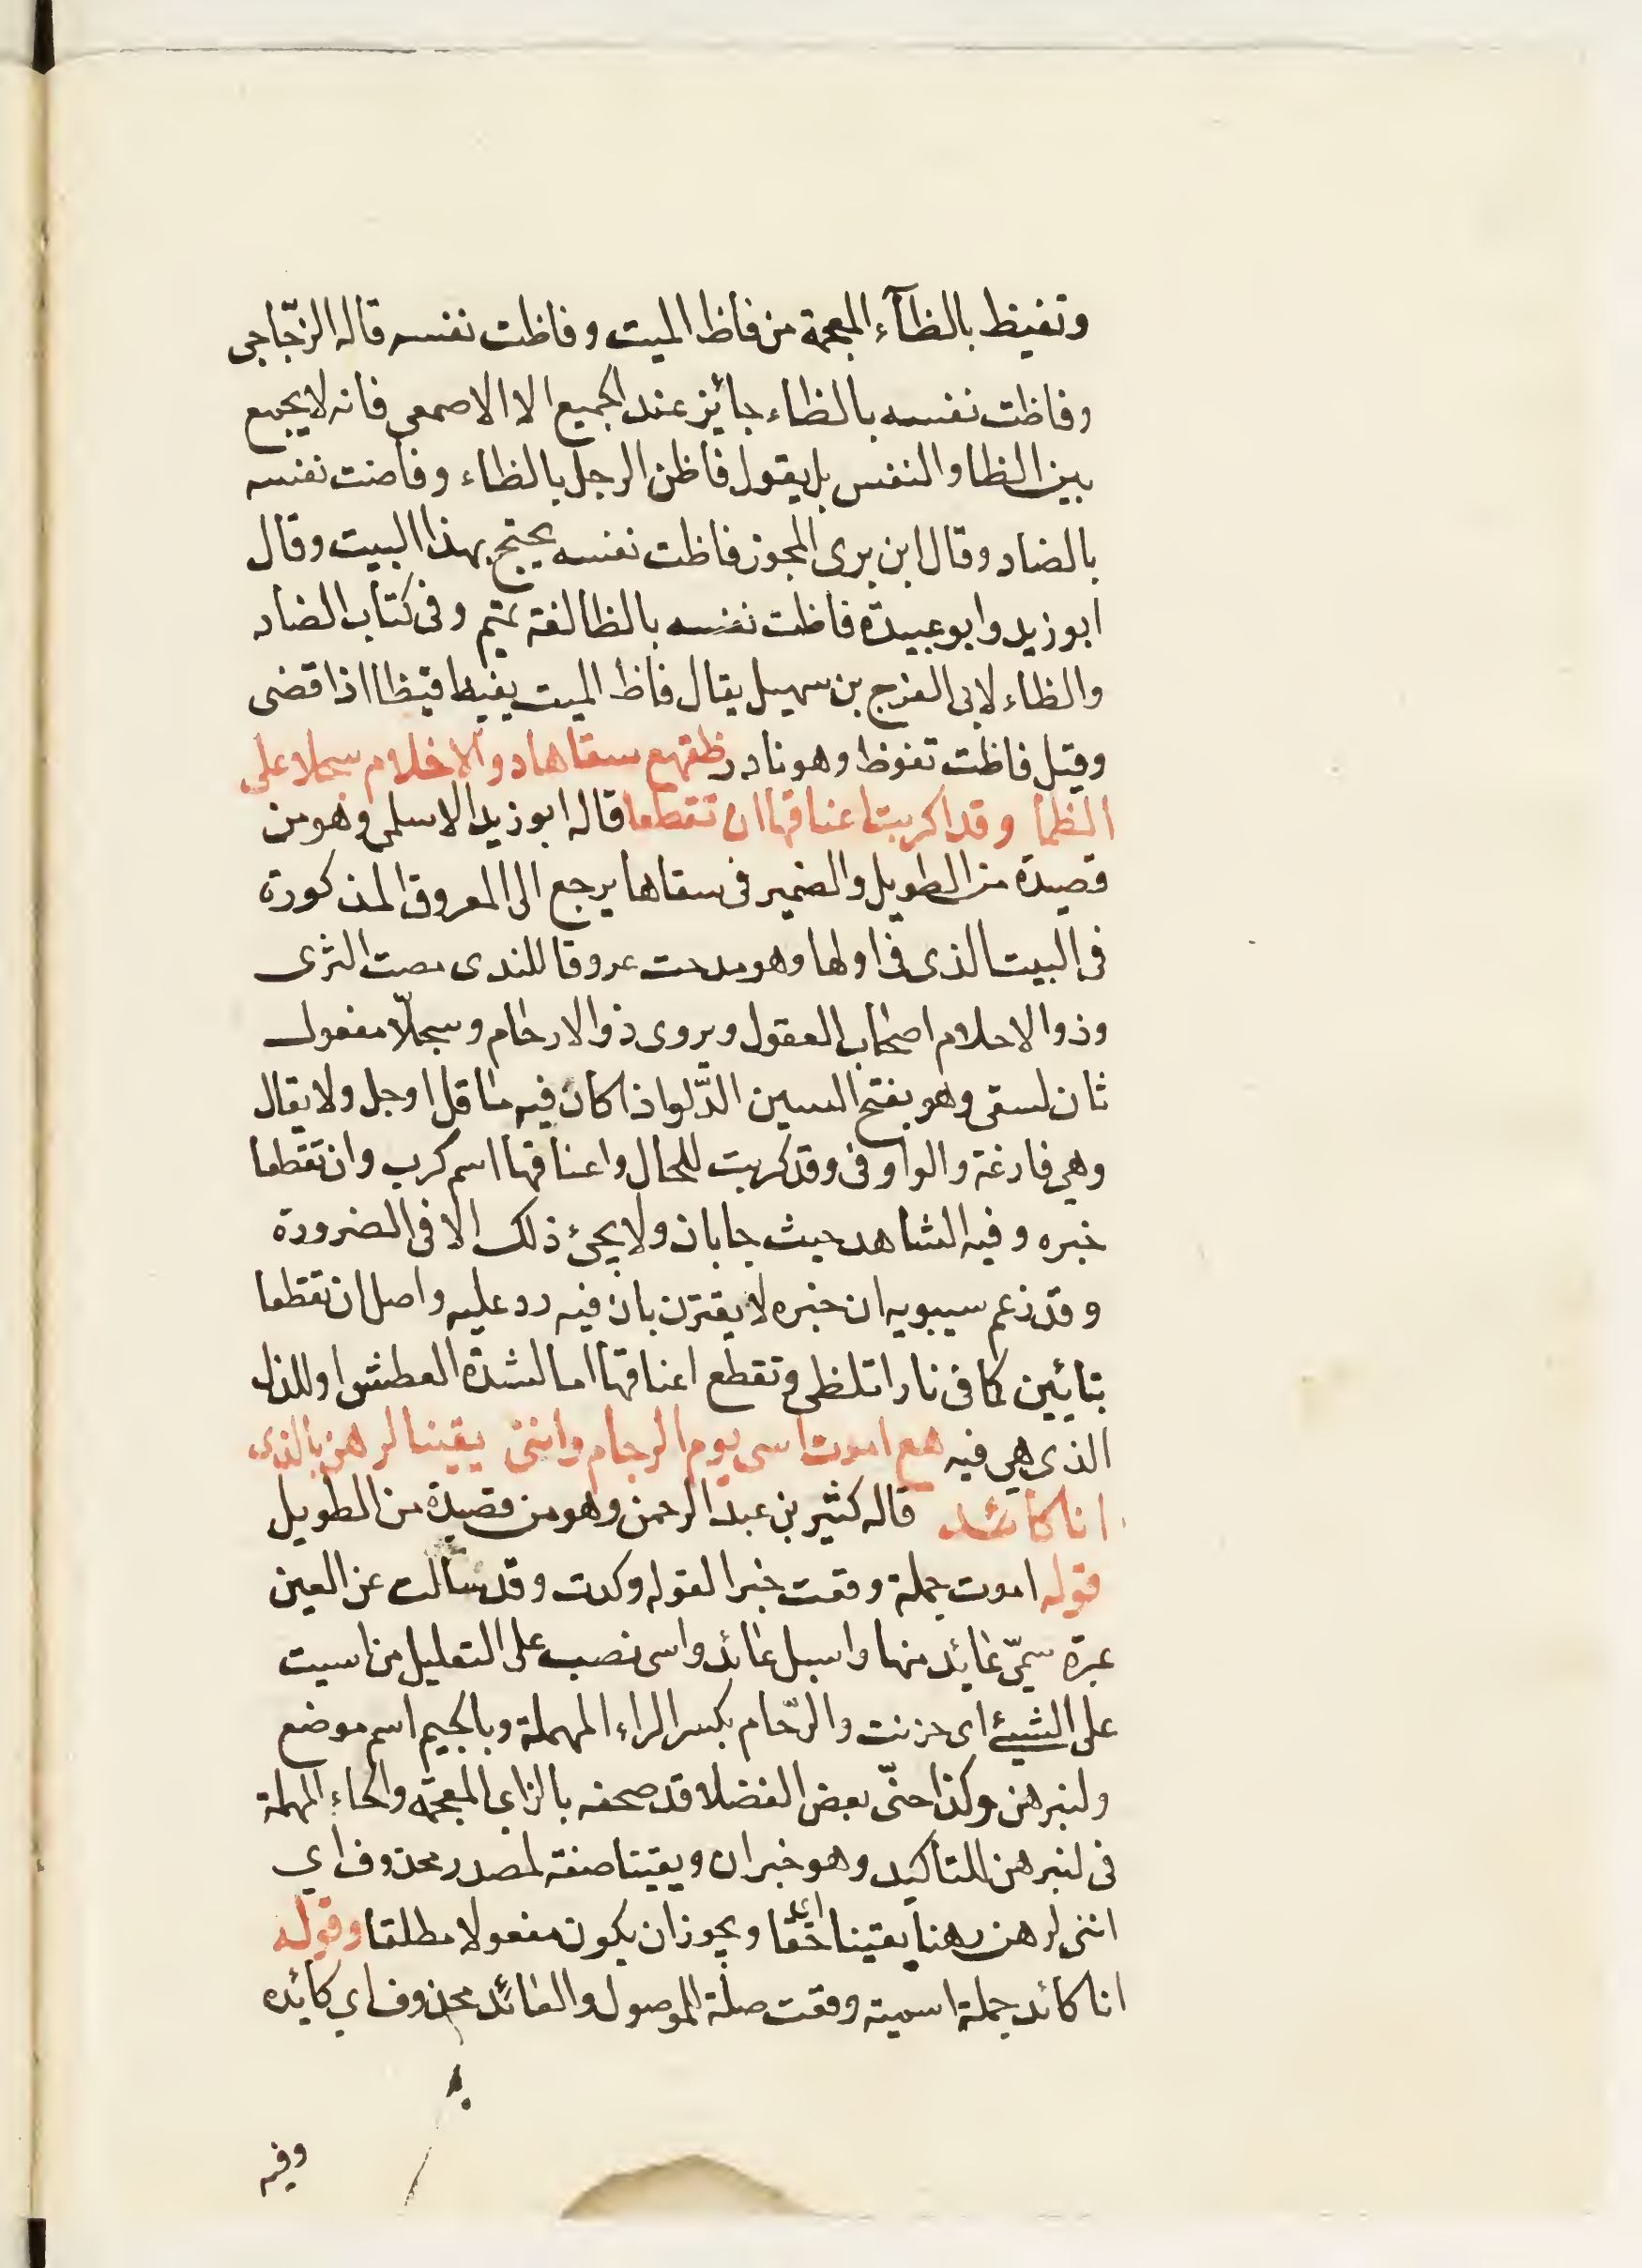 وتفيظ بالظآء المعجمة من فاظ الميت وفاظت نفسه قاله الزّجاجى
وفاظت نفسه بالظاء جائز عند الجميع الا الاصمعى فانه لا يجمع
بين الظا والنفس بل يقول فاظ الرجل بالظاء وفاضت نفسه
بالضاد وقال ابن برى المجوز فاظت نفسه يحتج بهذا البيت وقال
ابو زيد وابو عبيدة فاظت نفسه بالظا لغة تميم وفى كتاب الضاد
والظاء لابى الفرج بن سهيل يقال فاظ الميت يفيظ فيظا اذا قضى
وقيل فاظت تفوظ وهو نادر ظقهع سقاها دو الاحلام سجلا على
الظما وقد اكربت اعناقها ان تقطعا قاله ابو زيد الاسلمى وهو من
قصيدة من الطويل والضمير فى سقاها يرجع الى العروق المذكورة
فى البيت الذى فى اولها وهو مدحت عروقا للندى مصت الثرى
وذوا الاحلام اصحاب العقول ويروى ذوا الارحام وسجلّا مفعول
ثان لسقى وهو بفتح السين الدّلو اذا كان فيه ما قل او جل ولا يقال
وهى فارغة والواو فى وقد كربت للحال واعناقها اسم كرب وان تقطعا
خبره وفيه الشاهد حيث جا بان ولا يجئ ذلك الا فى الضرورة
وقد زعم سيبويه ان خبره لا يقترن بان فيه رد عليه واصل ان تقطعا
بتائين كما فى نارا تلظى وتقطع اعناقها اما لشدة العطش او للذل
الذى هي فيه هع اموت اسى يوم الرجام واننى يقينا لرهن بالذى
انا كائد قاله كثير بن عبد الرحمن وهو من قصيدة من الطويل
قوله اموت جملة وقعت خبرا لقوله وكدت وقد سالت عن العين
عبرة سمّى عائد منها واسبل عائد واسى نصب على التعليل من اسيت
على الشيئ اى حزنت والرّجام بكسر الراء المهملة وبالجيم اسم موضع
ولنبرهن وكذا حتّى بعض الفضلا قد صحفه بالزاي المعجمة والحاء المهملة
فى لنبرهن للتاكيد وهو خبر ان ويقينا صفة لمصدر محذوف اي
اننى لرهن رهنا يقينا اى حقا ويجوز ان يكون مفعولا مطلقا وقوله
انا كائد جملة اسمية وقعت صلة الموصول والعائد محذوف اي كائده
وفيه